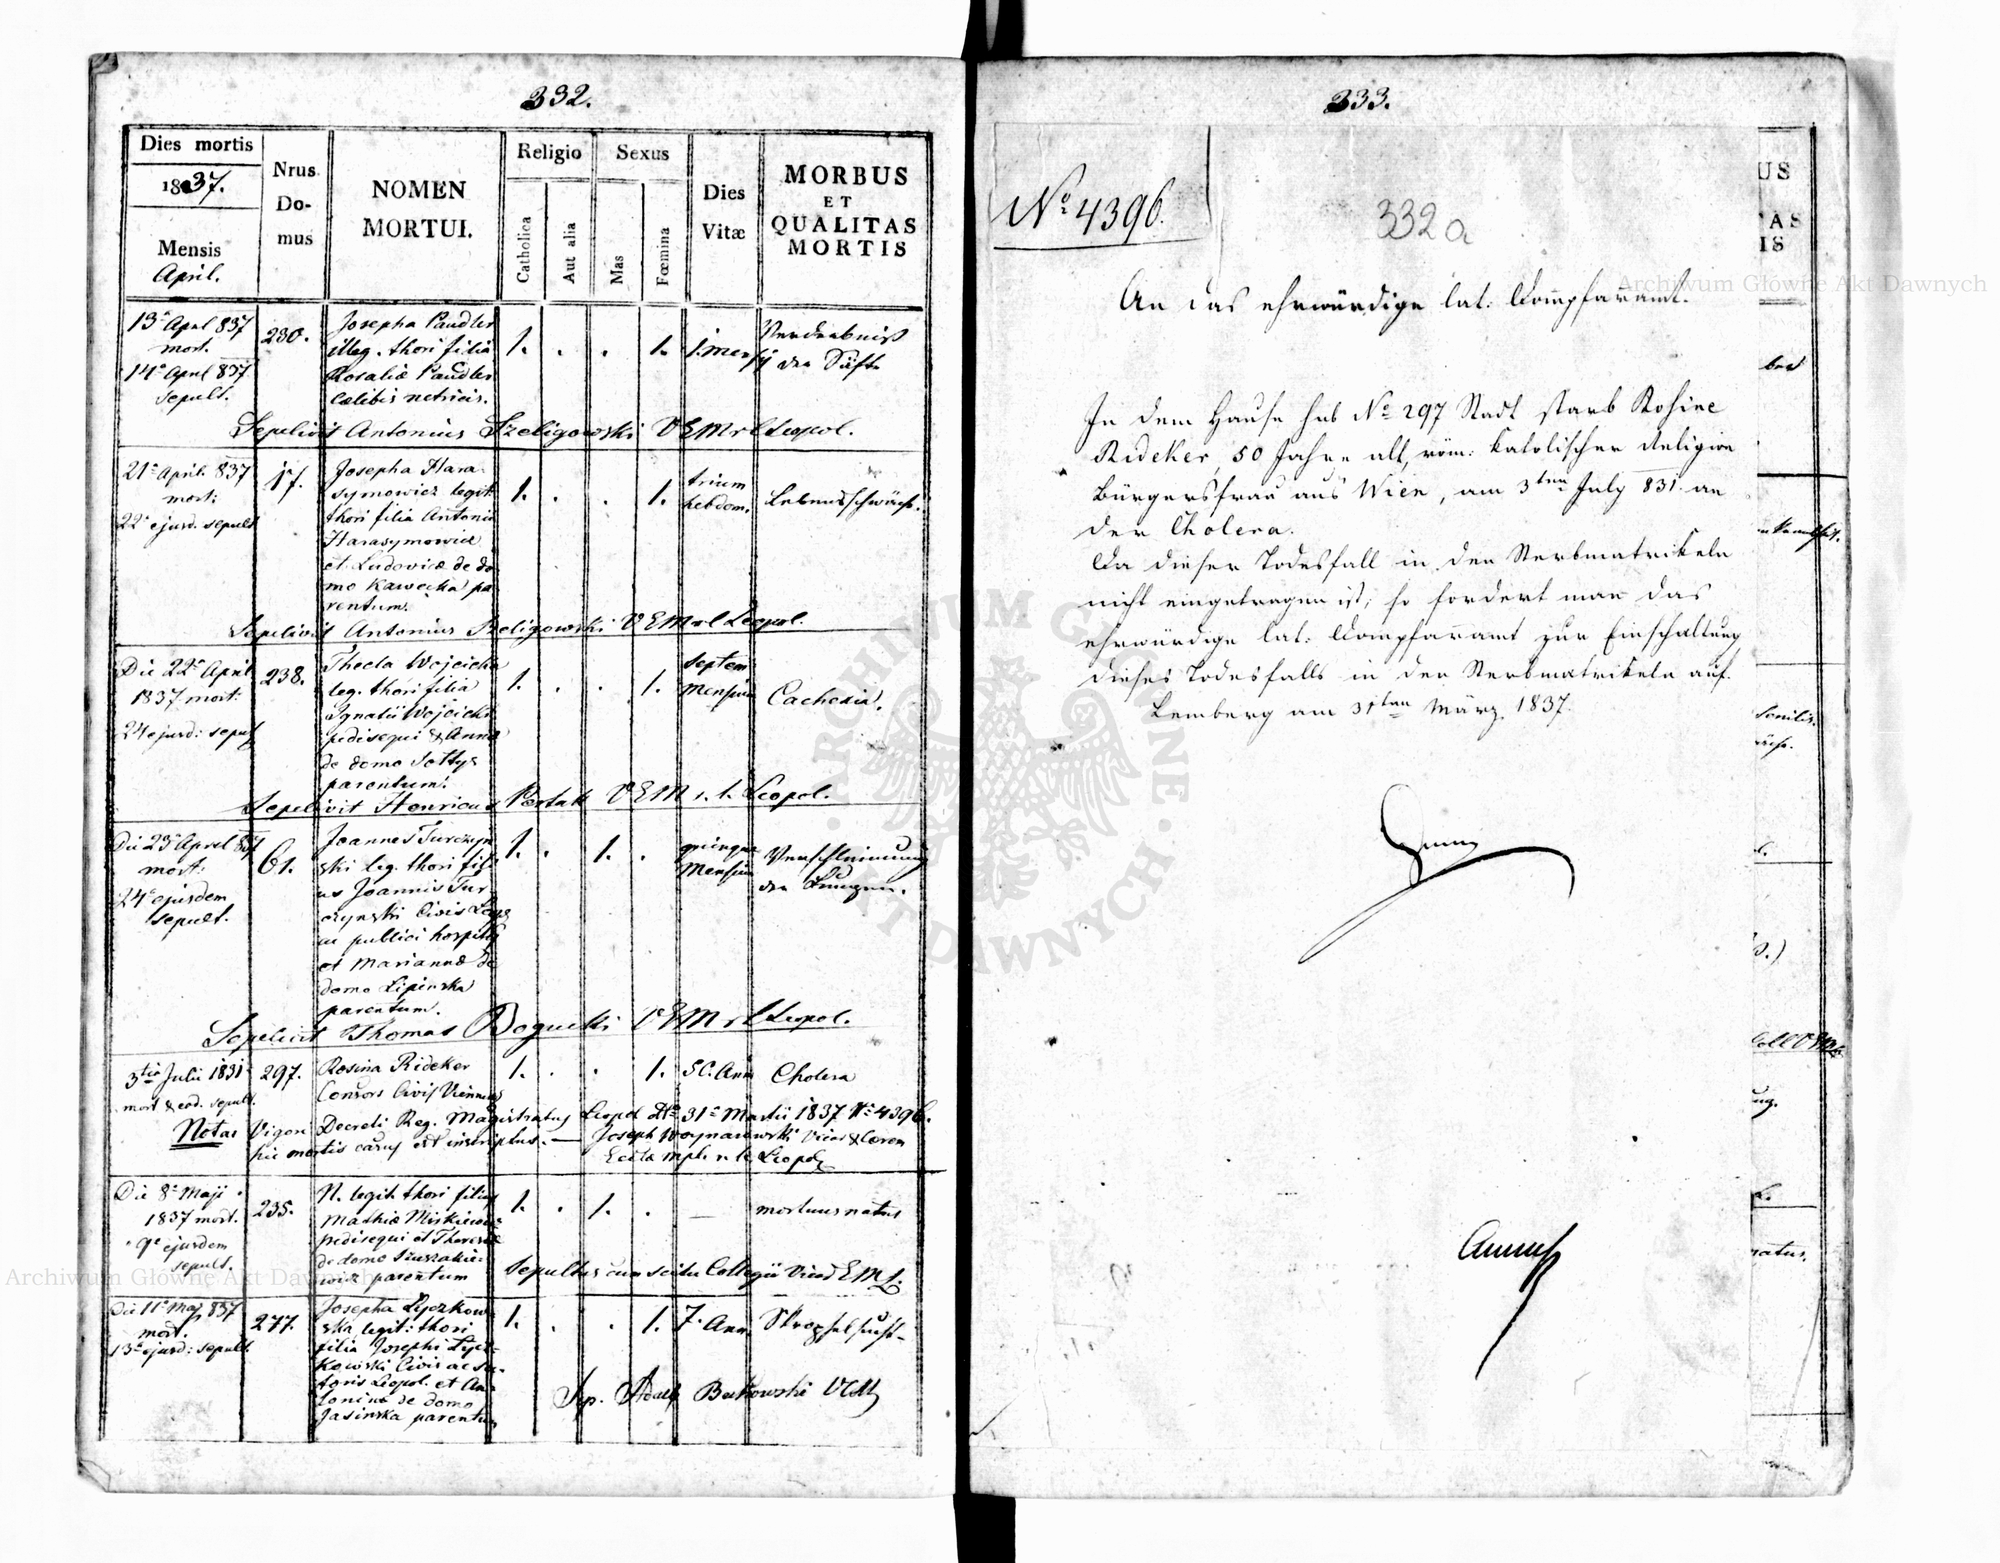 332.
Dies mortis
1837.
Mensis
April.
Nrus
Do-
mus
NOMEN
MORTUI.
Religio
Catholica
Aut alia
Sexus
Mas
Fœmina
Dies
Vitæ
MORBUS
ET
QUALITAS
MORTIS
13a April 837
mort.
14a April 837
sepult.
230.
Josepha Paudler
illeg. thori filia
Rosaliæ Paudler
cælibis nutricis.
1. . . 1.
Verderbniß
der Säfte
Sepelivit Antonius Szeligowski V E M r l Leopol.
21a April. 837
mort:
22a ejusd. sepult
17.
Josepha Hara-
symowicz legit.
thori filia Antonii
Harasymowicz
et Ludovicæ de do
mo Kawecka pa
rentum.
1. . . 1.
trium
hebdom.
Lebensschwäche.
Sepelivit Antonius Szeligowski V E M r l Leopol.
Die 22a April
1837 mort:
24 ejusd: sepult
238.
Thecla Wojcicka
leg. thori filia
Ignatii Wojcicki
pedisequi & Anna
de domo Sottys
parentum.
1. . . 1.
septem
mensium
Cachexia.
Sepelivit Henricus V E M r. l. Leopol.
Die 23a April 837
mort:
24a ejusdem
sepult.
61.
Joannes Turczyn
ski leg. thori fili
us Joannis Tur
czynski Civis Leop
ac publici hospitis
et Mariannæ de
domo Lipinska
parentum.
1. . 1. .
quinque
mensium
Verschleimung
der Lungen.
Sepelivit Thomas Bogucki V E M r l Leopol.
3tia Julii 1831
mort & eod. sepult.
297.
Rosina Rideker
Consors Civis Viennens
1. . . 1.
50. Ann
Cholera
Nota: Vigore Decreti Reg. Magistratus Leopol. dto 31a Martii 1837 No 4396.
hic mortis casus est inscriptus. — Joseph Woynarowski Vicar & Coren
Eccla mpli r. l. Leopol
Die 8a Maji
1837 mort.
9a ejusdem
sepult.
235.
N. legit. thori filius
Mathiæ Mirkiewicz
pedisequi et Theresiæ
de domo
parentum
1. . 1. . —
mortuus natus
Sepultus cum scitu Collegii Vicar E M L.
Die 11a Maj 837
mort.
13a ejusd: sepult.
277.
Josepha Lyczkow
ska legit: thori
filia Josephi Lycz-
kowski Civis ac su-
toris Leopol. et An-
toninæ de domo
Jasinska parentum
1. . . 1.
7. Ann.
Skrophelsucht
Sep. Adolf V E M
333.
No 4396.
332a
An das ehrwürdige lat: Dompfaramt.
In dem Hause sub No 297 Stadt starb Rosine
Rideker, 50 Jahre alt, röm: katolischer Religion
Bürgersfrau aus Wien, am 3ten July 831 an
der Cholera.
Da dieser Todesfall in den Sterbmatrikeln
nicht eingetragen ist; so fordert man das
ehrwürdige lat: Dompfarramt zur Einschaltung
dieses Todesfalls in den Sterbmatrikeln auf.
Lemberg am 31ten März 1837.
US
AS
IS
natus.
Archiwum Główne Akt Dawnych
Archiwum Główne Akt Dawnych
ARCHIWUM GŁÓWNE AKT DAWNYCH